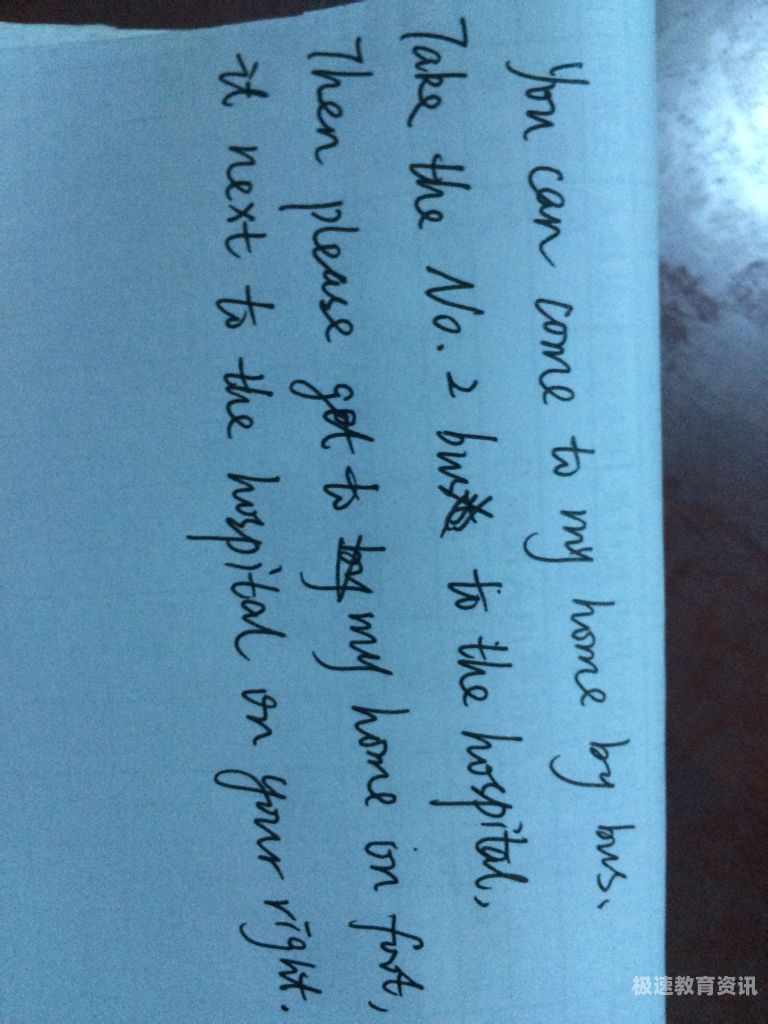 You can come to my home by bus.
Take the No. 2 bus to the hospital,
Then please get to my home on foot,
it next to the hospital on your right.
极速教育资讯